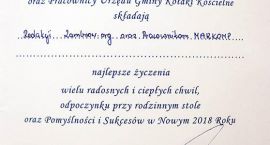 oraz Pracownicy Urzędu Gminy Kołaki Kościelne
składają
Redakcji Zambrow.org oraz Pracownikom MARKOMP
najlepsze życzenia
wielu radosnych i ciepłych chwil,
odpoczynku przy rodzinnym stole
oraz Pomyślności i Sukcesów w Nowym 2018 Roku